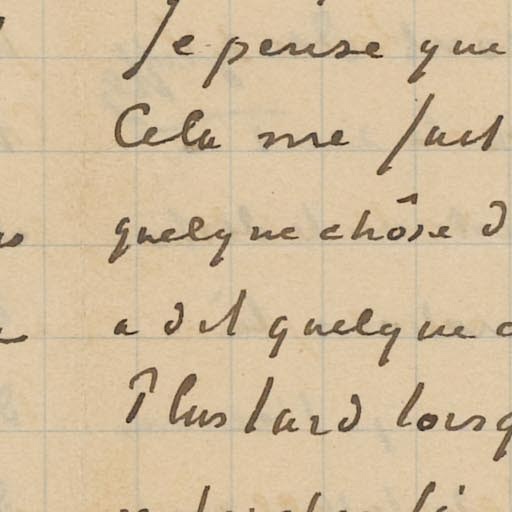 Je pense que
Cela me fait
quelque chôse d
a dit quelque c
Plus tard lorsq